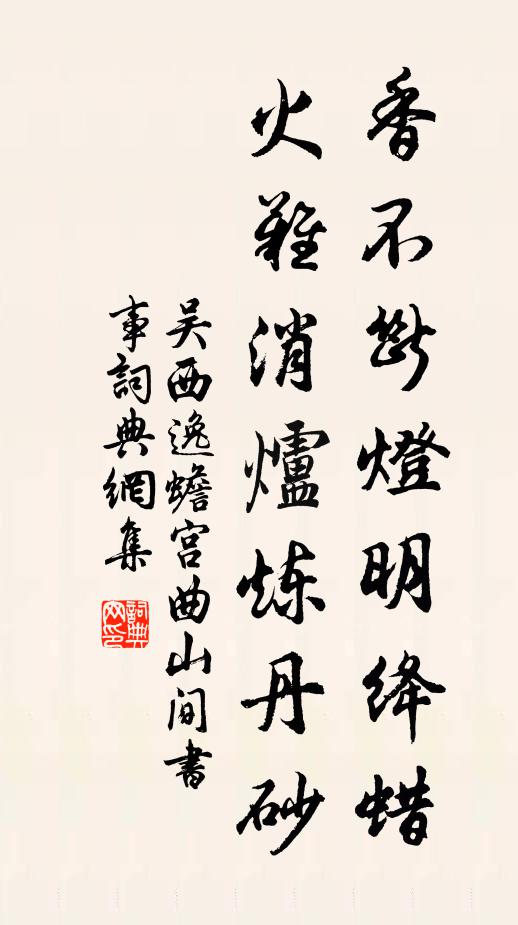 香不斷燈明绛蜡
火難消爐炼丹砂
吴西逸蟾宫曲山间書
事詞典網集
詞典网印